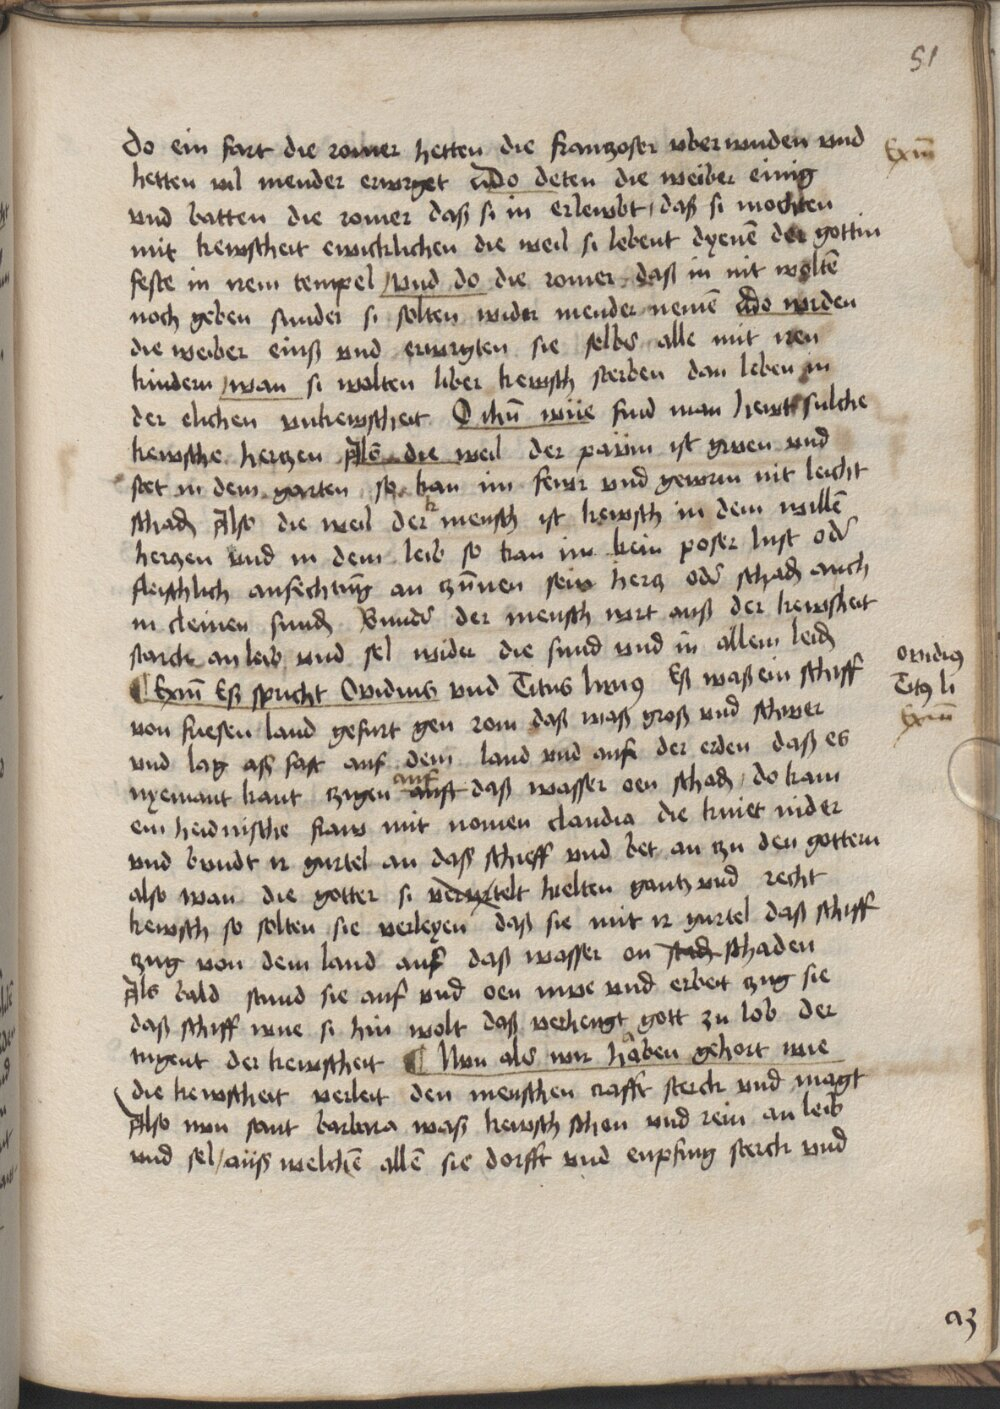 51
do ein fart die romer hetten die franzosen vber wnden vnd
Exm̄
hetten vil mender erwrget do deten die weiber einig
vnd batten die romer daß si in erlewbt daß si mochten
mit kewscheit ewicklichen die weil si lebent dyenē der gottin
feste in irem tempel vnd do die romer daß in nit woltē
noch geben sunder si solten wider mender nemē do wrden
die weiber einß vnd erwrgten sie selbs alle mit iren
kindern wan si wolten liber kewsch sterben dan leben in
der elichen vnkewscheit O ihū wie find man hewt sulche
kewsche hertzen Als die weil der pawm ist grven vnd
stet in dem garten so kan im fewr vnd gewrm nit leicht
schadn Also die weil der mensch ist kewsch in dem willē
herczen vnd in dem leib so kan im kein poser lust oder
fleischlich anfechtūg an zūnnen sein hercz oder schadn auch
in cleinen sundn Sunder der mensch wirt auß der kewscheit
starck an leib vnd sel wider die sund vnd in allem leidn
ovidius
Titus li
Exm̄
¶ Exm̄ Eß spricht Ovidius vnd Titus livius Eß waß ein schiff
von friesen land gefurt gen rom daß waß groß vnd schwer
vnd lag aß fast auf dem land vnd auf der erden daß es
auf
nyemant kant zygen auff daß wasser oen schadn do kam
ein heidnische fraw mit nomen claudia die kniet nider
vnd bundt ir gurtel an daß schieff vnd bet an zu den gottern
also wan die gotter si vervrtelt hielten gantz vnd recht
kewsch so solten sie verleyen daß sie mit ir gurtel daß schiff
zug von dem land auf daß wasser on schadn schaden
Als bald stund sie auf vnd oen mve vnd erbeit zug sie
daß schiff wue si hin wolt daß verhengt gott zu lob der
tugent der kewscheit ¶ Nvn als wir haben gehort wie
die kewscheit verleit den menschen crafft sterck vnd magt
Also nvn sant barbara waß kewsch schon vnd rein an leib
vnd sel auß welchē allē sie dorfft vnd enpfing sterck vnd